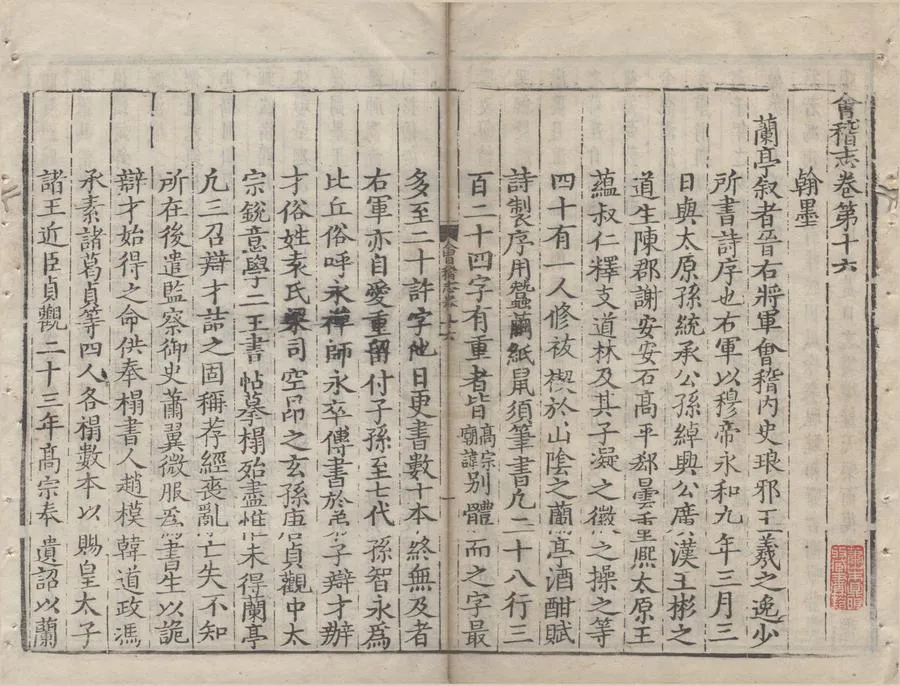 會稽志卷第十六
翰墨
蘭亭叙者晉右將軍會稽內史琅邪王羲之逸少
所書詩序也右軍以穆帝永和九年三月三
日與太原孫統承公孫綽興公廣漢王彬之
道生陳郡謝安安石高平郄曇重熙太原王
蘊叔仁釋支道林及其子凝之徽之操之等
四十有一人修祓禊於山陰之蘭亭酒酣賦
詩製序用蠶繭紙鼠須筆書凡二十八行三
百二十四字有重者皆高宗廟諱別體而之字最
會稽志卷十六
多至二十許字他日更書數十本終無及者
右軍亦自愛重留付子孫至七代孫智永為
比丘俗呼永禪師永卒傳書於弟子辯才辯
才俗姓袁氏梁司空昂之玄孫唐貞觀中太
宗銳意學二王書帖摹榻殆盡惟未得蘭亭
凢三召辯才詰之固稱荐經喪亂亡失不知
所在後遣監察御史蕭翼微服爲書生以詭
辯才始得之命供奉榻書人趙模韓道政馮
承素諸葛貞等四人各榻數本以賜皇太子
諸王近臣貞觀二十三年高宗奉遺詔以蘭